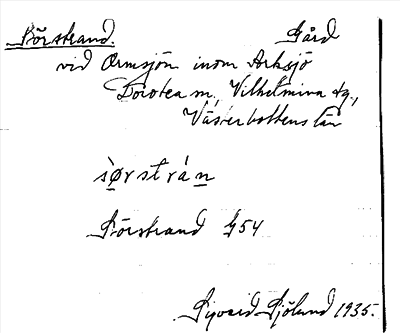 Sörstrand. Gård
vid Ormsjön inom Arksjö
Dorotea sn, Vilhelmina tg.,
Västerbottens län
sørstrán
Sörstrand G54
Sigvard Sjölund 1935.